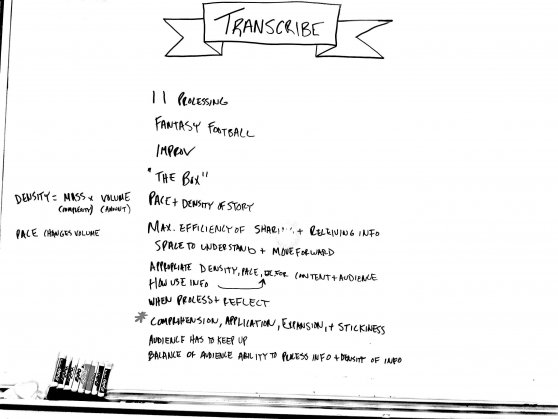 TRANSCRIBE
11 PROCESSING
FANTASY FOOTBALL
IMPROV
"THE BOX"
DENSITY = MASS x VOLUME
(COMPLEXITY) (AMOUNT)
PACE + DENSITY OF STORY
PACE CHANGES VOLUME
MAX. EFFICIENCY OF SHARI + RECEIVING INFO
SPACE TO UNDERSTAND + MOVE FORWARD
APPROPRIATE DENSITY, PACE, FOR CONTENT + AUDIENCE
HOW USE INFO
WHEN PROCESS + REFLECT
* COMPREHENSION, APPLICATION, EXPANSION, + STICKINESS
AUDIENCE HAS TO KEEP UP
BALANCE OF AUDIENCE ABILITY TO PROCESS INFO + DENSITY OF INFO